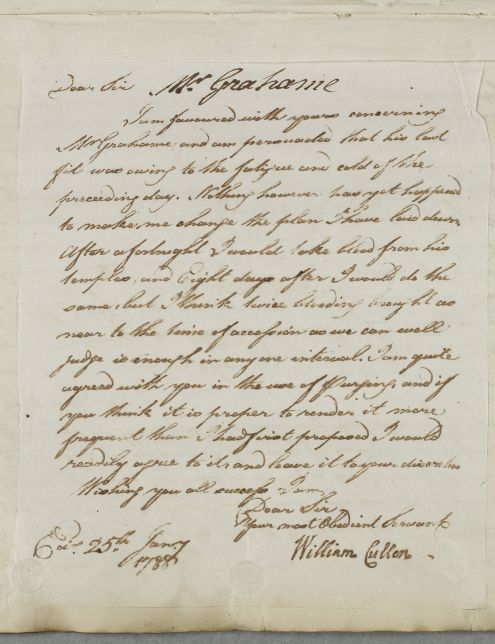 Dear Sir Mr Grahame
I am favoured with yours concerning
Mr Grahame and am persuaded that his last
fit was owing to the fatigue and cold of the
preceeding day. Nothing however has yet happned
to make me change the plan I have laid down
After a fortnight I would take blood from his
temples, and Eight days after I would do the
same, but I think twice bleeding brought as
near to the time of accession as we can well
judge is enough in any one interval. I am quite
agreed with you in the use of Purging and if
you think it is proper to render it more
frequent than I had first proposed I would
readily agree to it, and leave it to your discretion
Wishing you all success I am
Dear Sir
Your most Obedient Servant
William Cullen
Edinr. 25th. Jany